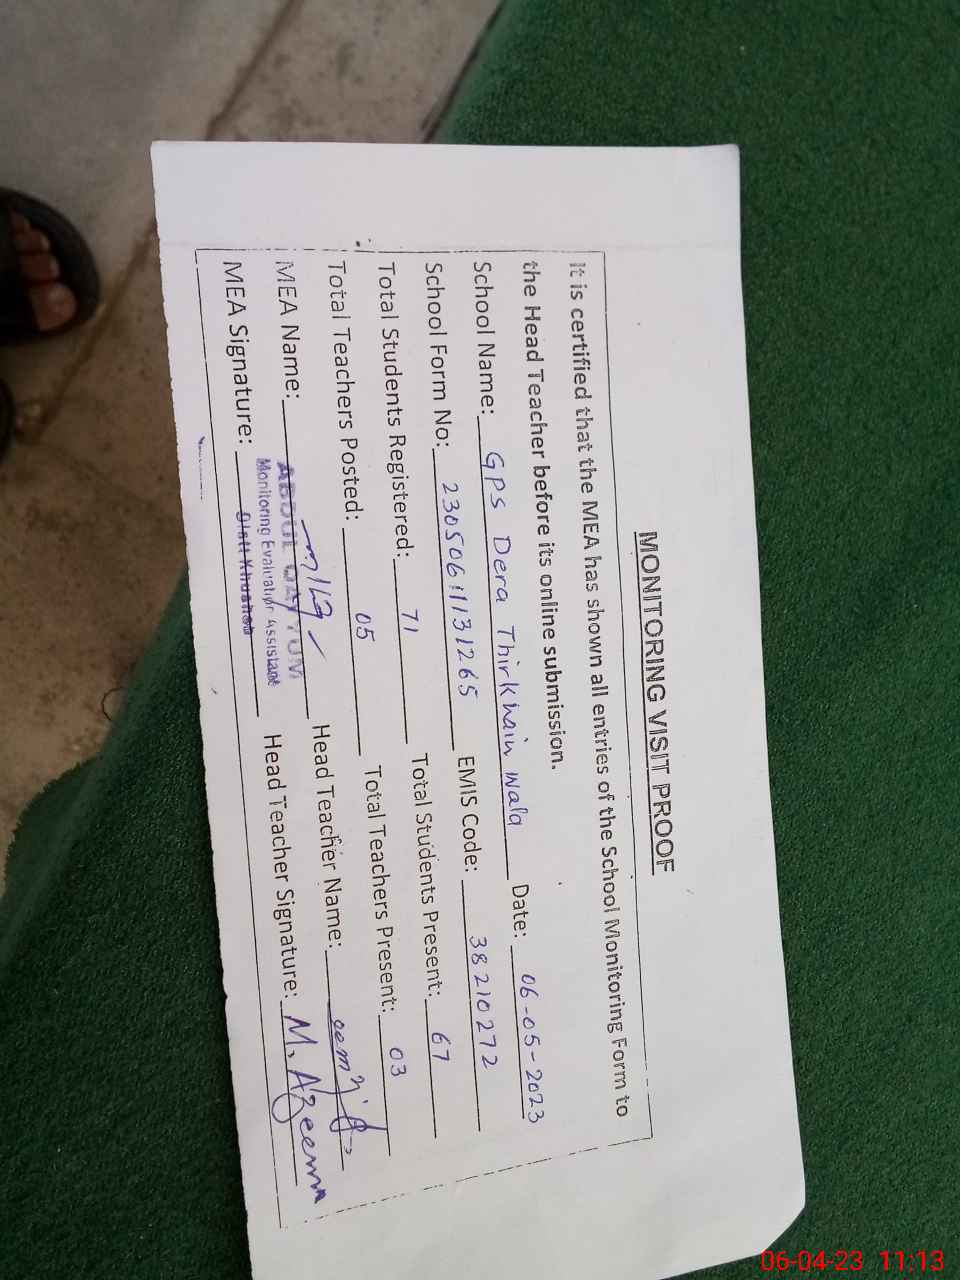 MONITORING VISIT PROOF
It is certified that the MEA has shown all entries of the School Monitoring Form to
the Head Teacher before its online submission.
School Name: Gps Dera Thirkhain wala Date: 06-05-2023
School Form No: 2305061131265 EMIS Code: 38210272
Total Students Registered: 71 Total Students Present: 67
Total Teachers Posted: 05 Total Teachers Present: 03
MEA Name: ABDUL QAYYUM Head Teacher Name:
Monitoring Evaluation Assistant
MEA Signature: Distt Khushab Head Teacher Signature: M. Azeem
06-04-23 11:13